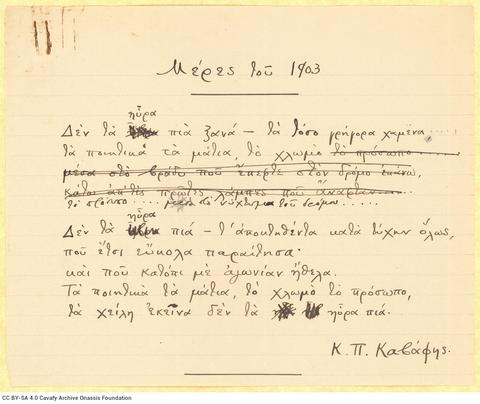 Μέρες του 1903
ηὗρα
Δεν τα πια ξανά — τα τόσο γρήγορα χαμένα....
τα ποιητικά τα μάτια, το χλωμό το πρόσωπο
μέσα στο βράδυ που έπεφτε στον δρόμο επάνω,
το πρόσωπο..... μες στο νύχτωμα του δρόμου.....
ηὗρα
Δεν τα πιά — τ' αποκτηθέντα κατά τύχην όλως,
που έτσι εύκολα παραίτησα·
και που κατόπι με αγωνίαν ήθελα.
Τα ποιητικά τα μάτια, το χλωμό το πρόσωπο,
τα χείλη εκείνα δεν τα ηὗρα πιά.
Κ. Π. Καβάφης.
CC BY-SA 4.0 Cavafy Archive Onassis Foundation